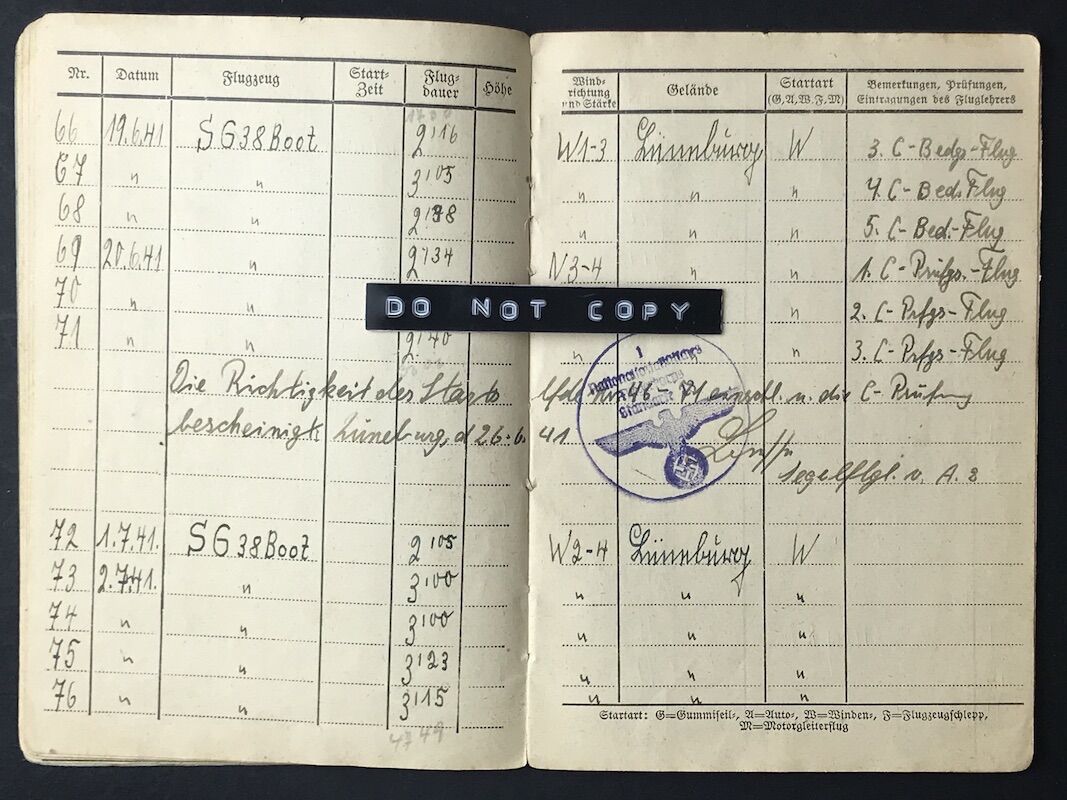 Nr. Datum Flugzeug Start-Zeit Flug-dauer Höhe Wind-richtung und Stärke Gelände Startart (G, A, W, F, M) Bemerkungen, Prüfungen, Eintragungen des Fluglehrers
66 19.6.41 SG38Boot 2'16 W1-3 Lüneburg W 3. C-Bedgs-Flug
67 " " 3'05 " " " 4. C-Bed.Flug
68 " " " " " 5. C-Bed.-Flug
69 20.6.41 " 2'34 N3-4 " " 1. C-Prüfgs.-Flug
70 " " 2. C-Prfgs-Flug
DO NOT COPY
71 " " 2'40 " " " 3. C-Prfgs-Flug
Die Richtigkeit der Starts lfd. Nr. 46-71 einschl. u. die C-Prüfung
bescheinigt. Lüneburg, d 26.6.41
Segelflgl. v. A. 3
72 1.7.41. SG38Boot 2'05 W2-4 Lüneburg W
73 2.7.41. " 3'00 " " "
74 " " 3'00 " " "
75 " " 3'23 " " "
76 " " 3'15 " " "
47 49
Startart: G=Gummiseil-, A=Auto-, W=Winden-, F=Flugzeugschlepp,
M=Motorgleiterflug